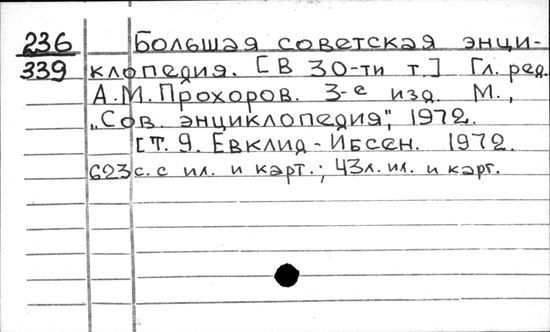 236 Большая советская энци-
339 клопедия. [В 30-ти т.] Гл. ред.
А.М. Прохоров. 3-е изд. М.,
„Сов. энциклопедия", 1972.
[Т. 9. Евклид - Ибсен. 1972.
623 с. с ил. и карт.; 43л. ил. и карт.